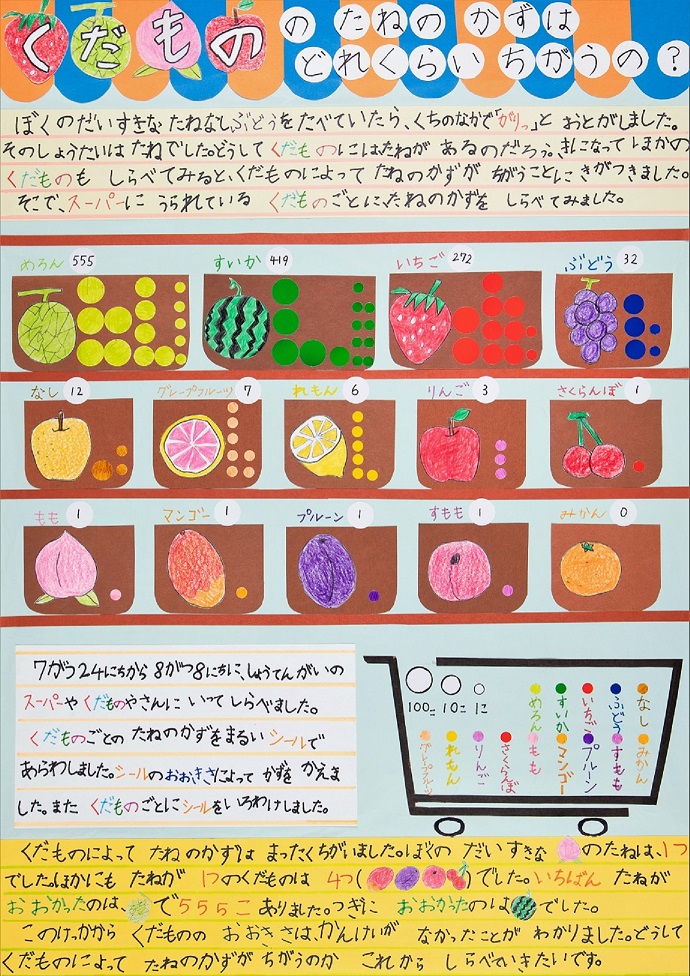 くだもののたねのかずは
どれくらいちがうの?
ぼくのだいすきなたねなしぶどうをたべていたら、くちのなかで「がりっ」とおとがしました。
そのしょうたいはたねでした。どうしてくだものにはたねがあるのだろう。きになってほかの
くだものもしらべてみると、くだものによってたねのかずがちがうことにきがつきました。
そこで、スーパーにうられているくだものごとに、たねのかずをしらべてみました。
めろん 555 すいか 419 いちご 272 ぶどう 32
なし 12 グレープフルーツ 7 れもん 6 りんご 3 さくらんぼ 1
もも 1 マンゴー 1 プルーン 1 すもも 1 みかん 0
7がつ24にちから8がつ8にちに、しょうてんがいの
スーパーやくだものやさんにいってしらべました。
くだものごとのたねのかずをまるいシールで
あらわしました。シールのおおきさによってかずをかえま
した。またくだものごとにシールをいろわけしました。
100こ 10こ 1こ
めろん すいか いちご ぶどう なし
グレープフルーツ れもん りんご さくらんぼ もも マンゴー プルーン すもも みかん
くだものによってたねのかずはまったくちがいました。ぼくのだいすきなのたねは、1つ
でした。ほかにもたねが1つのくだものは4つ()でした。いちばんたねが
おおかったのは、で555こありました。つぎにおおかったのはでした。
このけっかからくだもののおおきさは、かんけいがなかったことがわかりました。どうして
くだものによってたねのかずがちがうのかこれからしらべていきたいです。